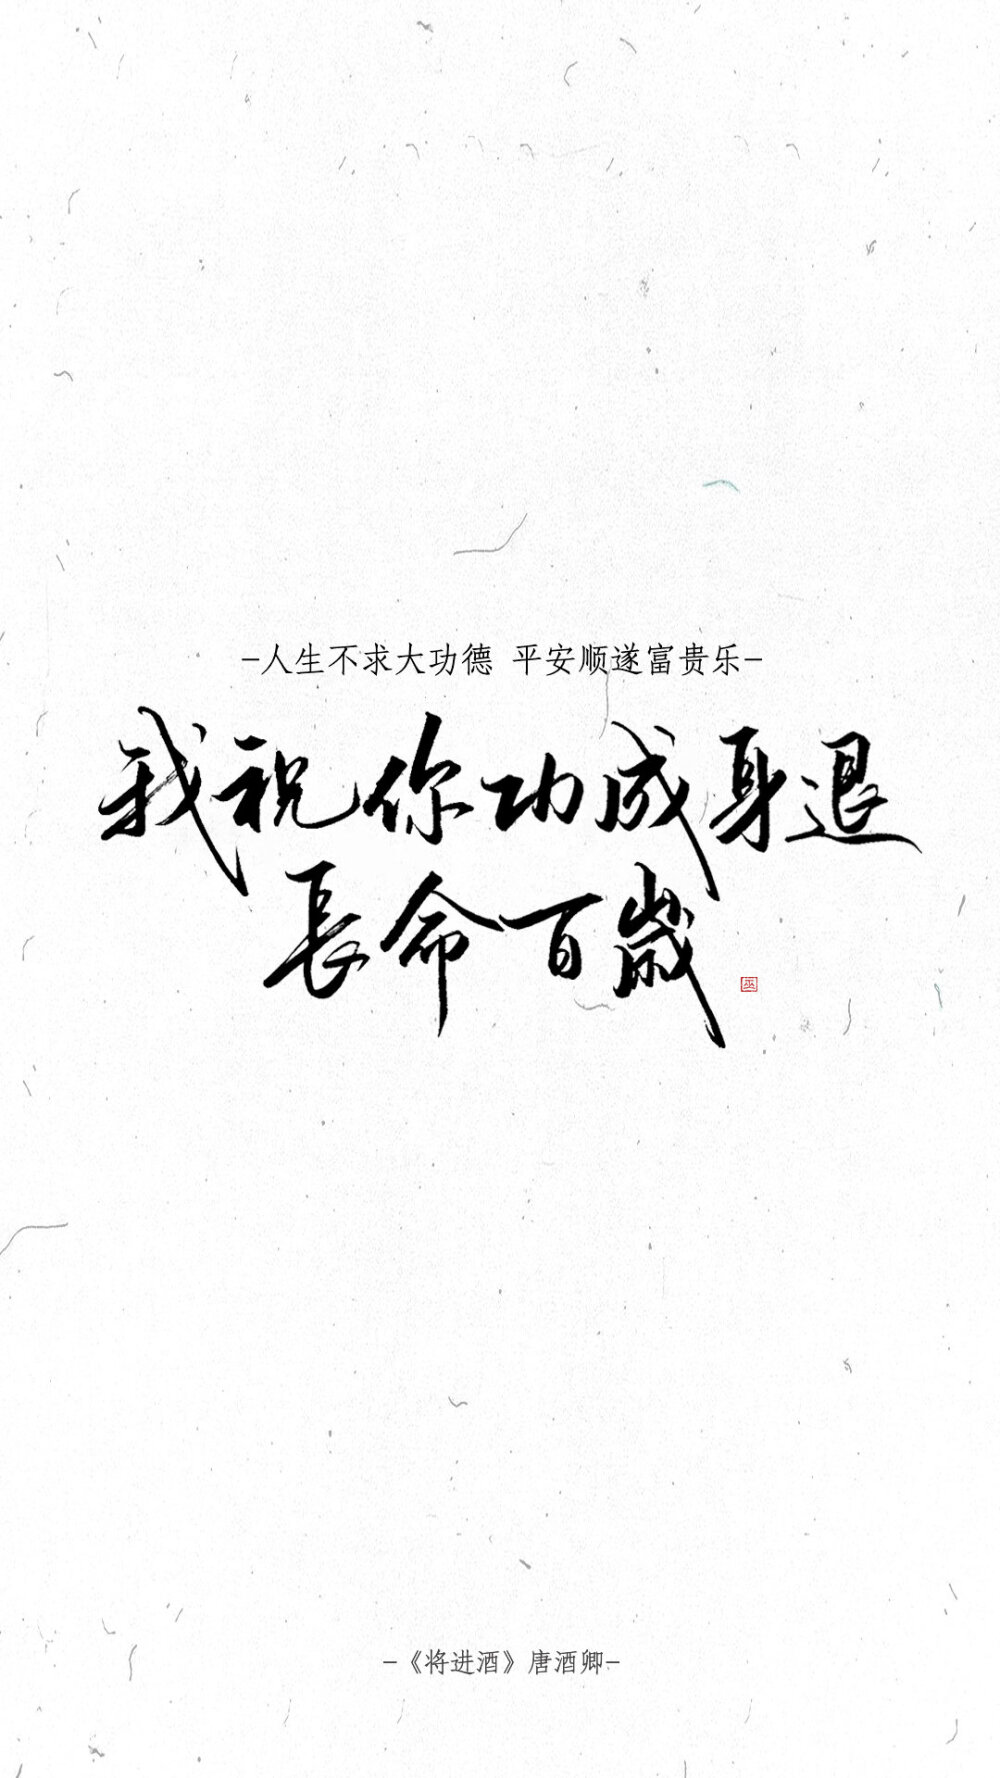 —人生不求大功德 平安顺遂富贵乐—
我祝你功成身退
長命百歲
巫
—《将进酒》唐酒卿—